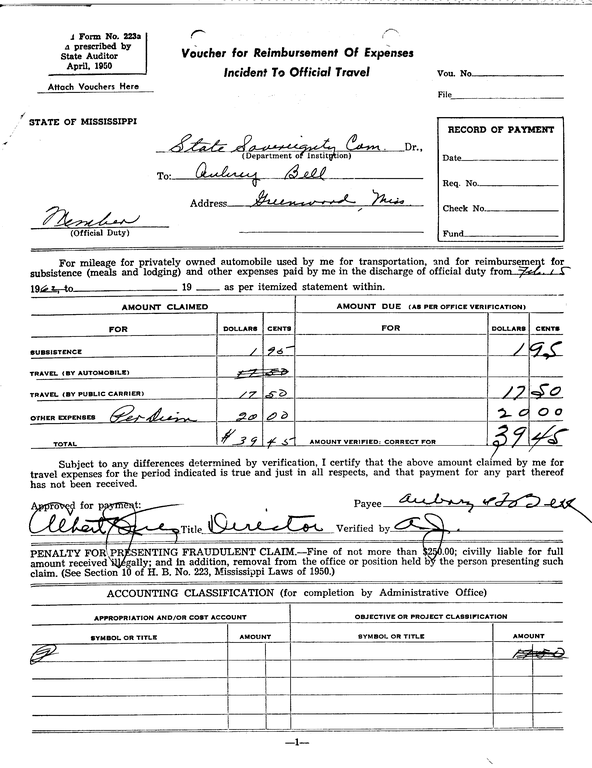 Form No. 223a
prescribed by
State Auditor
April, 1950
Attach Vouchers Here
Voucher for Reimbursement Of Expenses
Incident To Official Travel
Vou. No.
File
STATE OF MISSISSIPPI
State Sovereignty Com. Dr.,
(Department of Institution)
To: Aubrey Bell
Address Greenwood, Miss
Member
(Official Duty)
RECORD OF PAYMENT
Date
Req. No.
Check No.
Fund
For mileage for privately owned automobile used by me for transportation, and for reimbursement for
subsistence (meals and lodging) and other expenses paid by me in the discharge of official duty from Feb. 15
1962 to 19 as per itemized statement within.
AMOUNT CLAIMED AMOUNT DUE (AS PER OFFICE VERIFICATION)
FOR DOLLARS CENTS FOR DOLLARS CENTS
SUBSISTENCE 1 95 1 95
TRAVEL (BY AUTOMOBILE) 17 50
TRAVEL (BY PUBLIC CARRIER) 17 50 17 50
OTHER EXPENSES Per Diem 20 00 20 00
TOTAL $39 45 AMOUNT VERIFIED: CORRECT FOR 39 45
Subject to any differences determined by verification, I certify that the above amount claimed by me for
travel expenses for the period indicated is true and just in all respects, and that payment for any part thereof
has not been received.
Approved for payment: Payee Aubrey Bell
Albert Jones Title Director Verified by A.J.
PENALTY FOR PRESENTING FRAUDULENT CLAIM.—Fine of not more than $250.00; civilly liable for full
amount received illegally; and in addition, removal from the office or position held by the person presenting such
claim. (See Section 10 of H. B. No. 223, Mississippi Laws of 1950.)
ACCOUNTING CLASSIFICATION (for completion by Administrative Office)
APPROPRIATION AND/OR COST ACCOUNT OBJECTIVE OR PROJECT CLASSIFICATION
SYMBOL OR TITLE AMOUNT SYMBOL OR TITLE AMOUNT
17 50
—1—